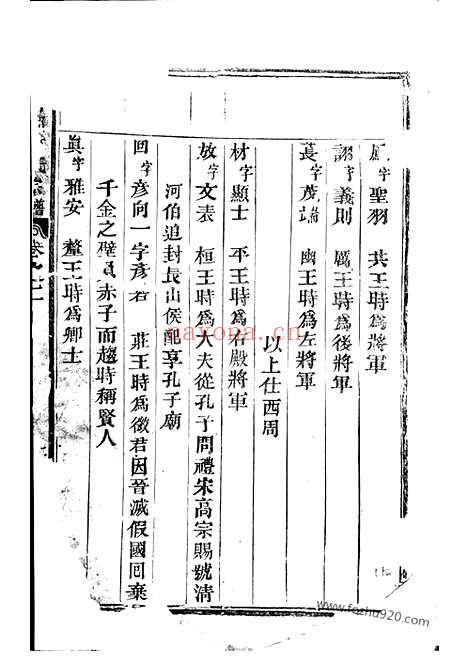 字聖羽 共王時爲將軍
詡字義則 厲王時爲後將軍
萇字茂端 幽王時爲左將軍
以上仕西周
材字顯士 平王時爲右殿將軍
放字文表 桓王時爲大夫從孔子問禮宋高宗賜號淸
河伯追封長山侯配享孔子廟
回字彥向一字彥若 莊王時爲徵君因晉滅假國囘棄
千金之璧負赤子而趨時稱賢人
眞字雅安 釐王時爲卿士
譜
卷
nayona.cn
www.fozhu920.com